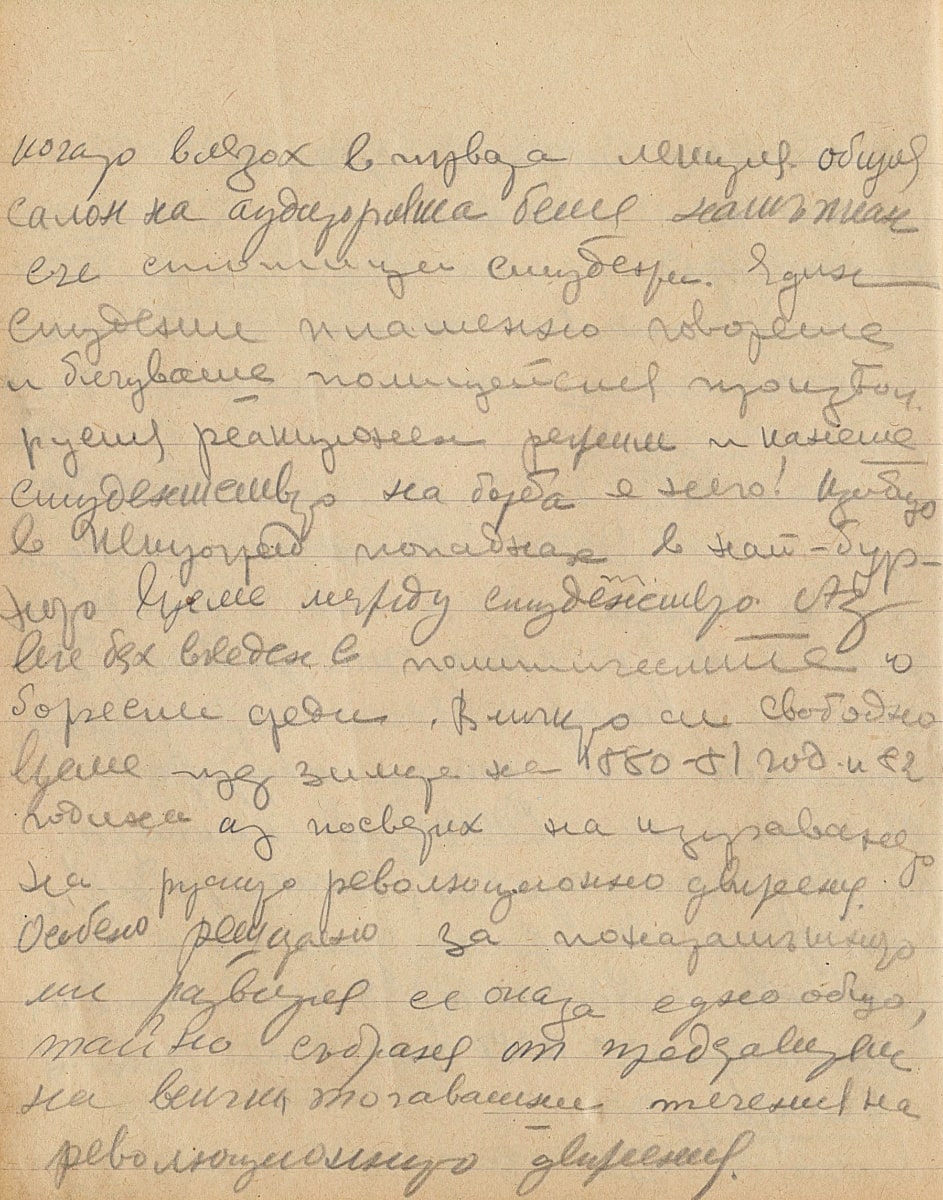 когато влязох в първата лекция. общия
салон на аудиторията беше натъпкан
със стотици студенти. Един
студент пламенно говореше
и бичуваше полицейския произвол.
руския реакционен режим и канеше
студентството на борба с него! Изобщо
в Петроград попаднах в най-бур-
ното време между студентството. Аз
вече бях въведен в политическите и
борчески среди. Всичкото си свободно
време през зимата на 1880-81 год. и 82
година аз посветих на изучаването
на руското революционно движение.
Особено решающо за понататъшното
ми развитие се оказа едно общо,
тайно събрание от представители
на всички тогавашни течения на
революционното движение.